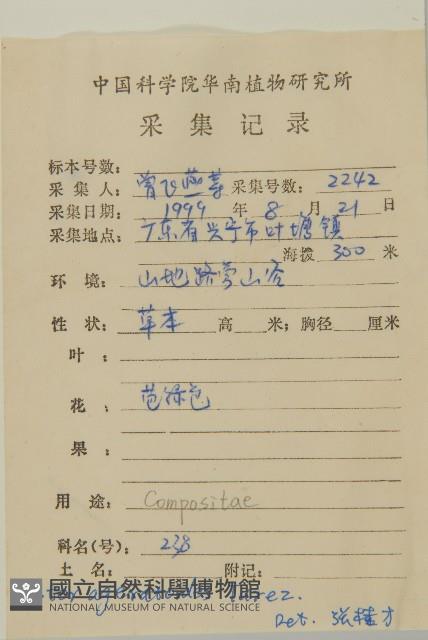 中国科学院华南植物研究所
采集记录
标本号数:
采集人: 曾飞燕等 采集号数: 2242
采集日期: 1999 年 8 月 21 日
采集地点: 广东省兴宁市叶塘镇
海拨 300 米
环境: 山地路旁山谷
性状: 草本 高 米; 胸径 厘米
叶:
花: 苞绿色
果:
用途: Compositae
科名(号): 238
土名: 附记:
國立自然科學博物館
NATIONAL MUSEUM OF NATURAL SCIENCE
Det. 张桂才